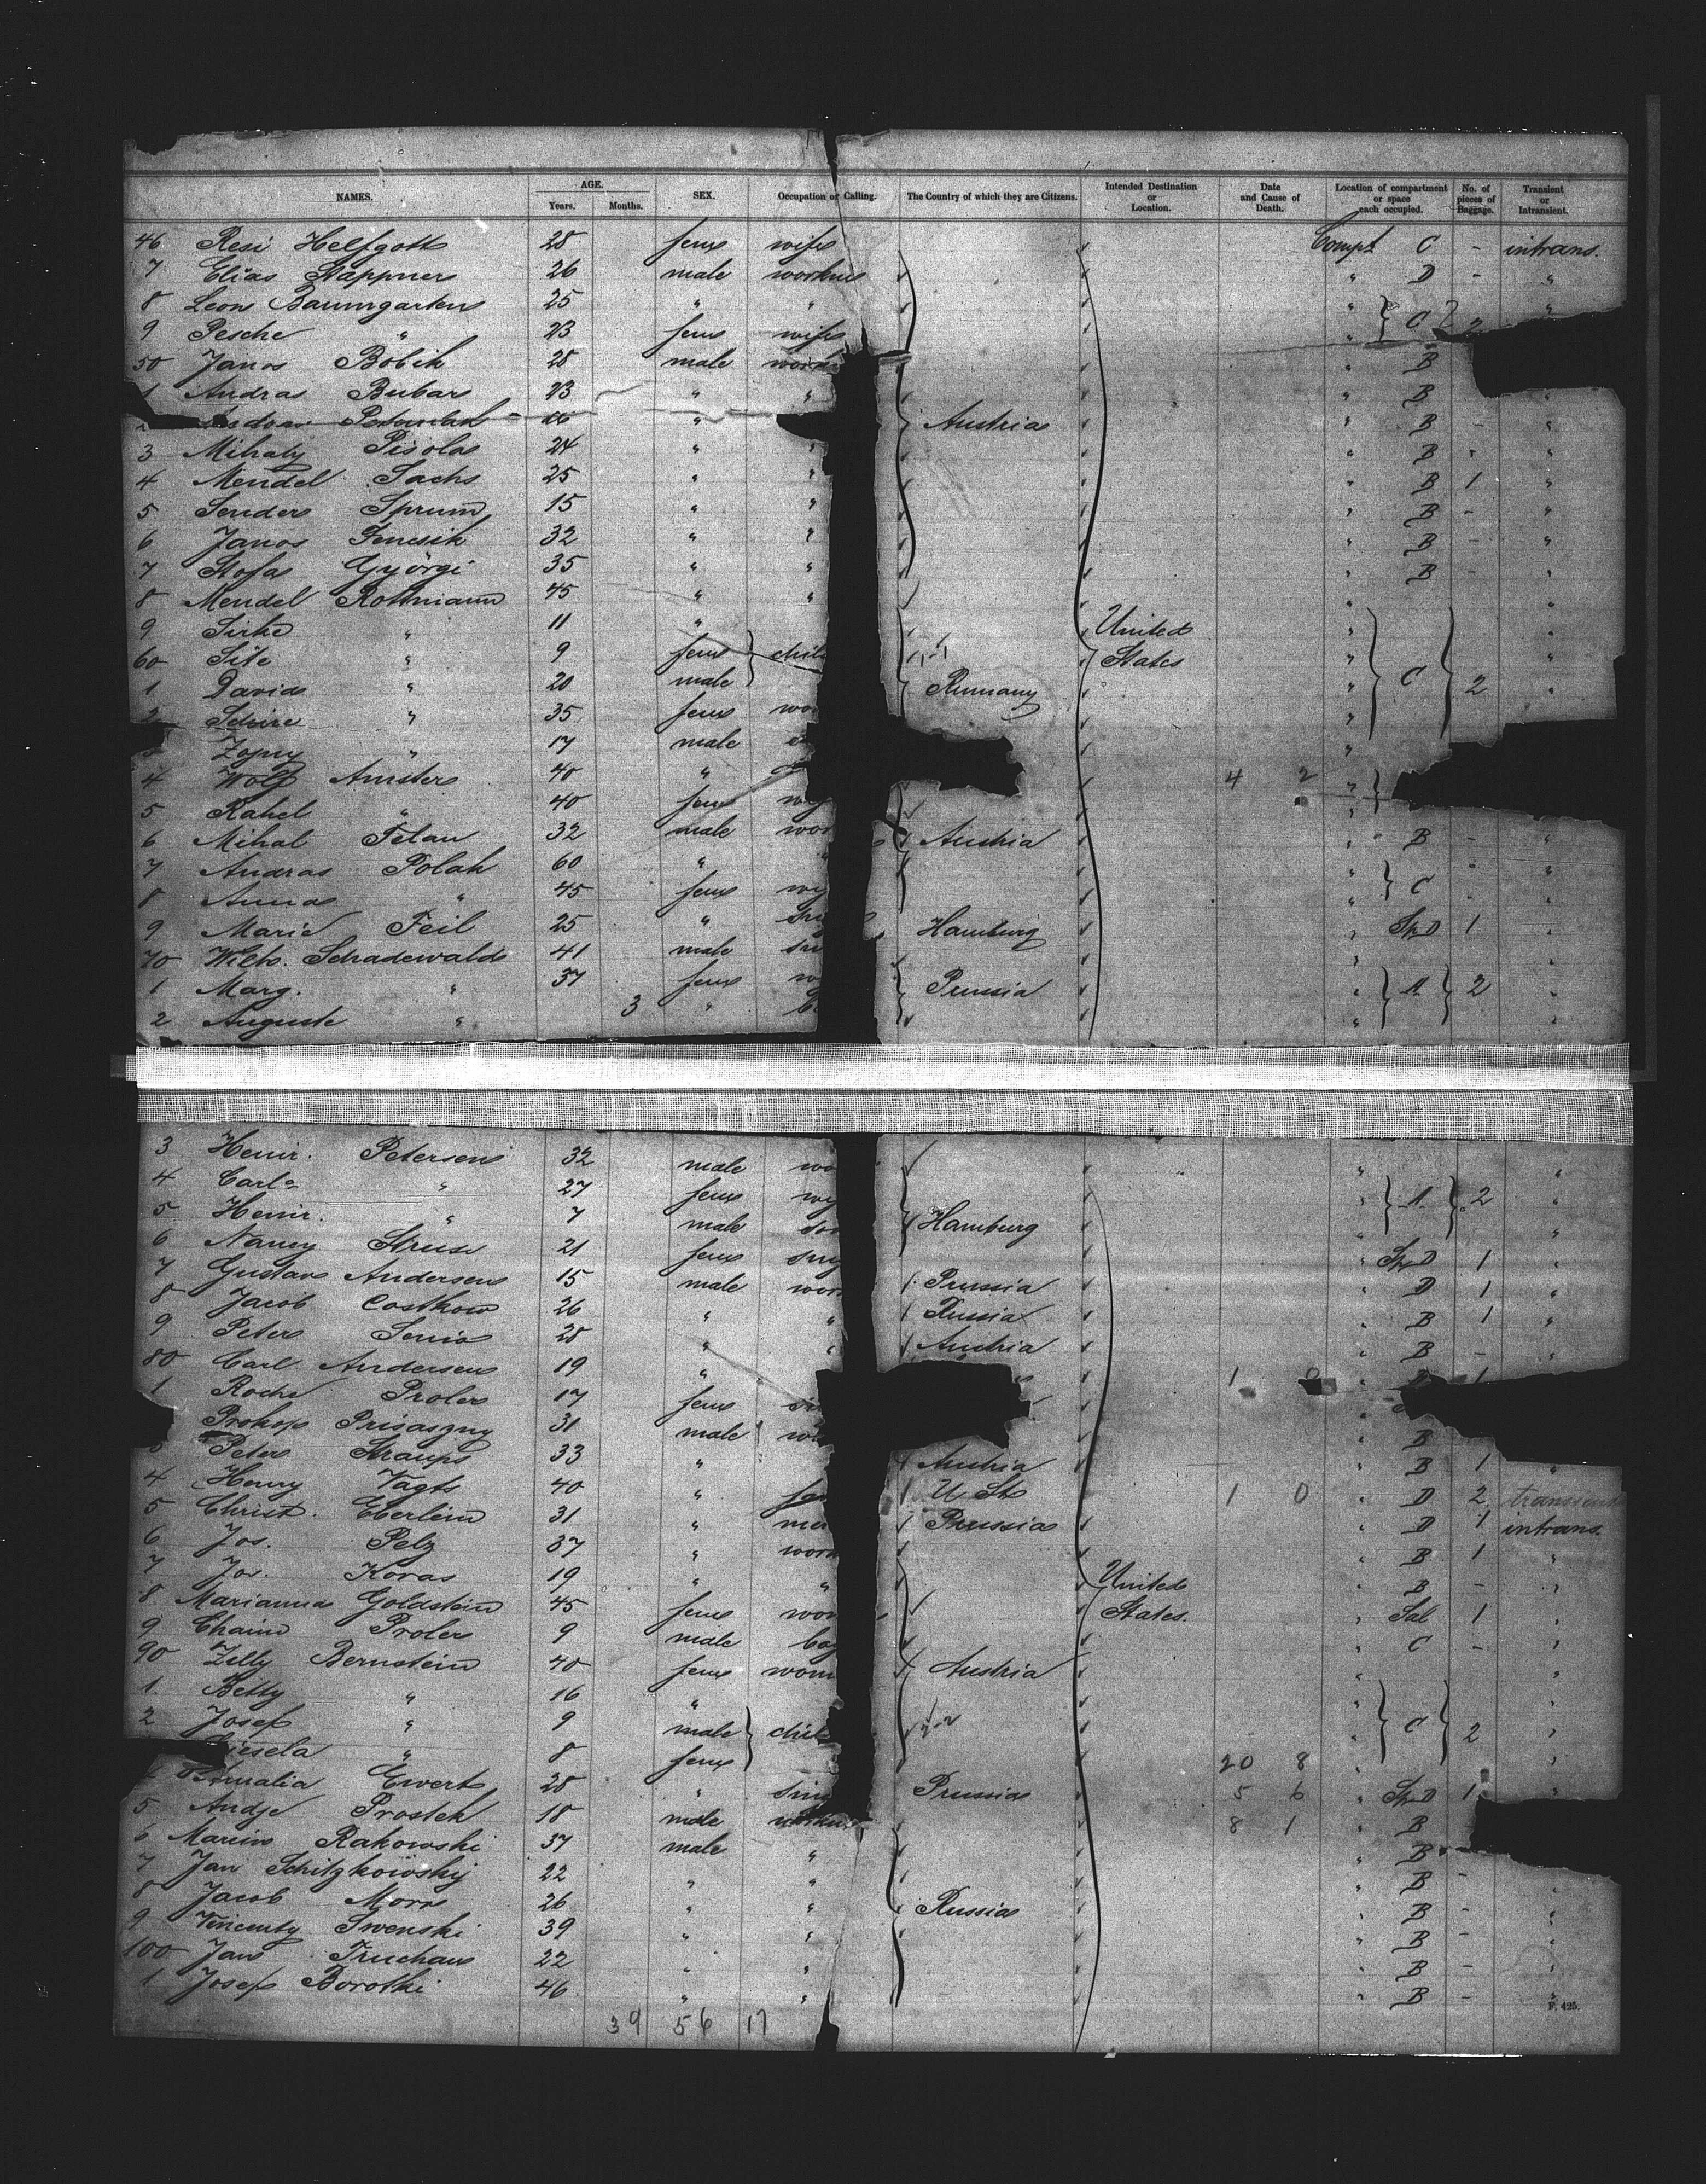 NAMES. AGE. Years. Months. SEX. Occupation or Calling. The Country of which they are Citizens. Intended Destination or Location. Date and Cause of Death. Location of compartment or space each occupied. No. of pieces of Baggage. Transient or Intransient.
46 Resi Helfgott 28 fem wife Compt C - intrans.
7 Elias Stappner 26 male " D - "
8 Leon Baumgarten 25 " " " "
9 Pesche " 23 fem wife " C 2
50 Janos Bobik 28 male work " B
1 Andras Bubar 23 " " " B "
26 " Austria " B - "
3 Mihaly Pisola 24 " " " B "
4 Mendel Sachs 25 " " " B 1 "
5 Sender Sprum 15 " " " B - "
6 Janos Fencsik 32 " " " B - "
7 Stofa Györgi 35 " " " B - "
8 Mendel Rottmann 45 " " " "
9 Sirke " 11 " United " "
60 Site " 9 fem chil States " "
1 David " 20 male Rumany " C 2 "
2 " 35 fem wo "
" 17 male "
4 Wolf Amster 40 " 4 2 "
5 Rahel " 40 fem
6 Mihal Felau 32 male wor Austria " B - "
7 Andras Polak 60 " " "
8 Anna " 45 fem " C - "
9 Marie Feil 25 " Hamburg " Sp D 1 "
70 Wilh. Schadewald 41 male " "
1 Marg. " 37 fem Prussia " A 2 "
2 Auguste " 3 " " "
3 Heinr. Petersen 32 male wo " " "
4 Carl " 27 fem " A 2 "
5 Heinr. " 7 male Hamburg " "
6 Nancy Struse 21 fem sing " Sp D 1 "
7 Gustav Andersen 15 male wor Prussia " D 1 "
8 Jacob Costkow 26 " " Russia " B 1 "
9 Peter Senia 28 " " Austria " B - "
80 Carl Andersen 19 " 1 0 " D 1
1 Roche Proler 17 fem
Prokop 31 male B
Peter Straups 33 " Austria " B 1 "
4 Henry Vagts 40 " U. St. 1 0 " D 2 transient
5 Christ. Eberlein 31 " mer Prussia " D 1 intrans.
6 Jos. Pelz 37 " work " B 1 "
7 Jos. Koras 19 " " United " B - "
8 Marianna Goldstein 45 fem wom States. " Sal 1 "
9 Chaim Proler 9 male boy " C - "
90 Zilly Bernstein 40 fem wom Austria " "
1. Betty " 16 " " "
2 Josef " 9 male chil C 2 "
Giesela " 8 fem 20 8 " "
Amalia Ewert 28 " sing Prussia 5 6 " Sp D 1 "
5 Andje Prostek 18 male 8 1 " B
6 Marcin Rakowski 37 male " " B
7 Jan Schitzkowskij 22 " " " B - "
8 Jacob Mora 26 " " Russia " B - "
9 Vincenty Swenski 39 " " " B - "
100 Jan Truchan 22 " " " B - "
1 Josef Borotki 46 " " " B - "
39 56 17
F. 425.